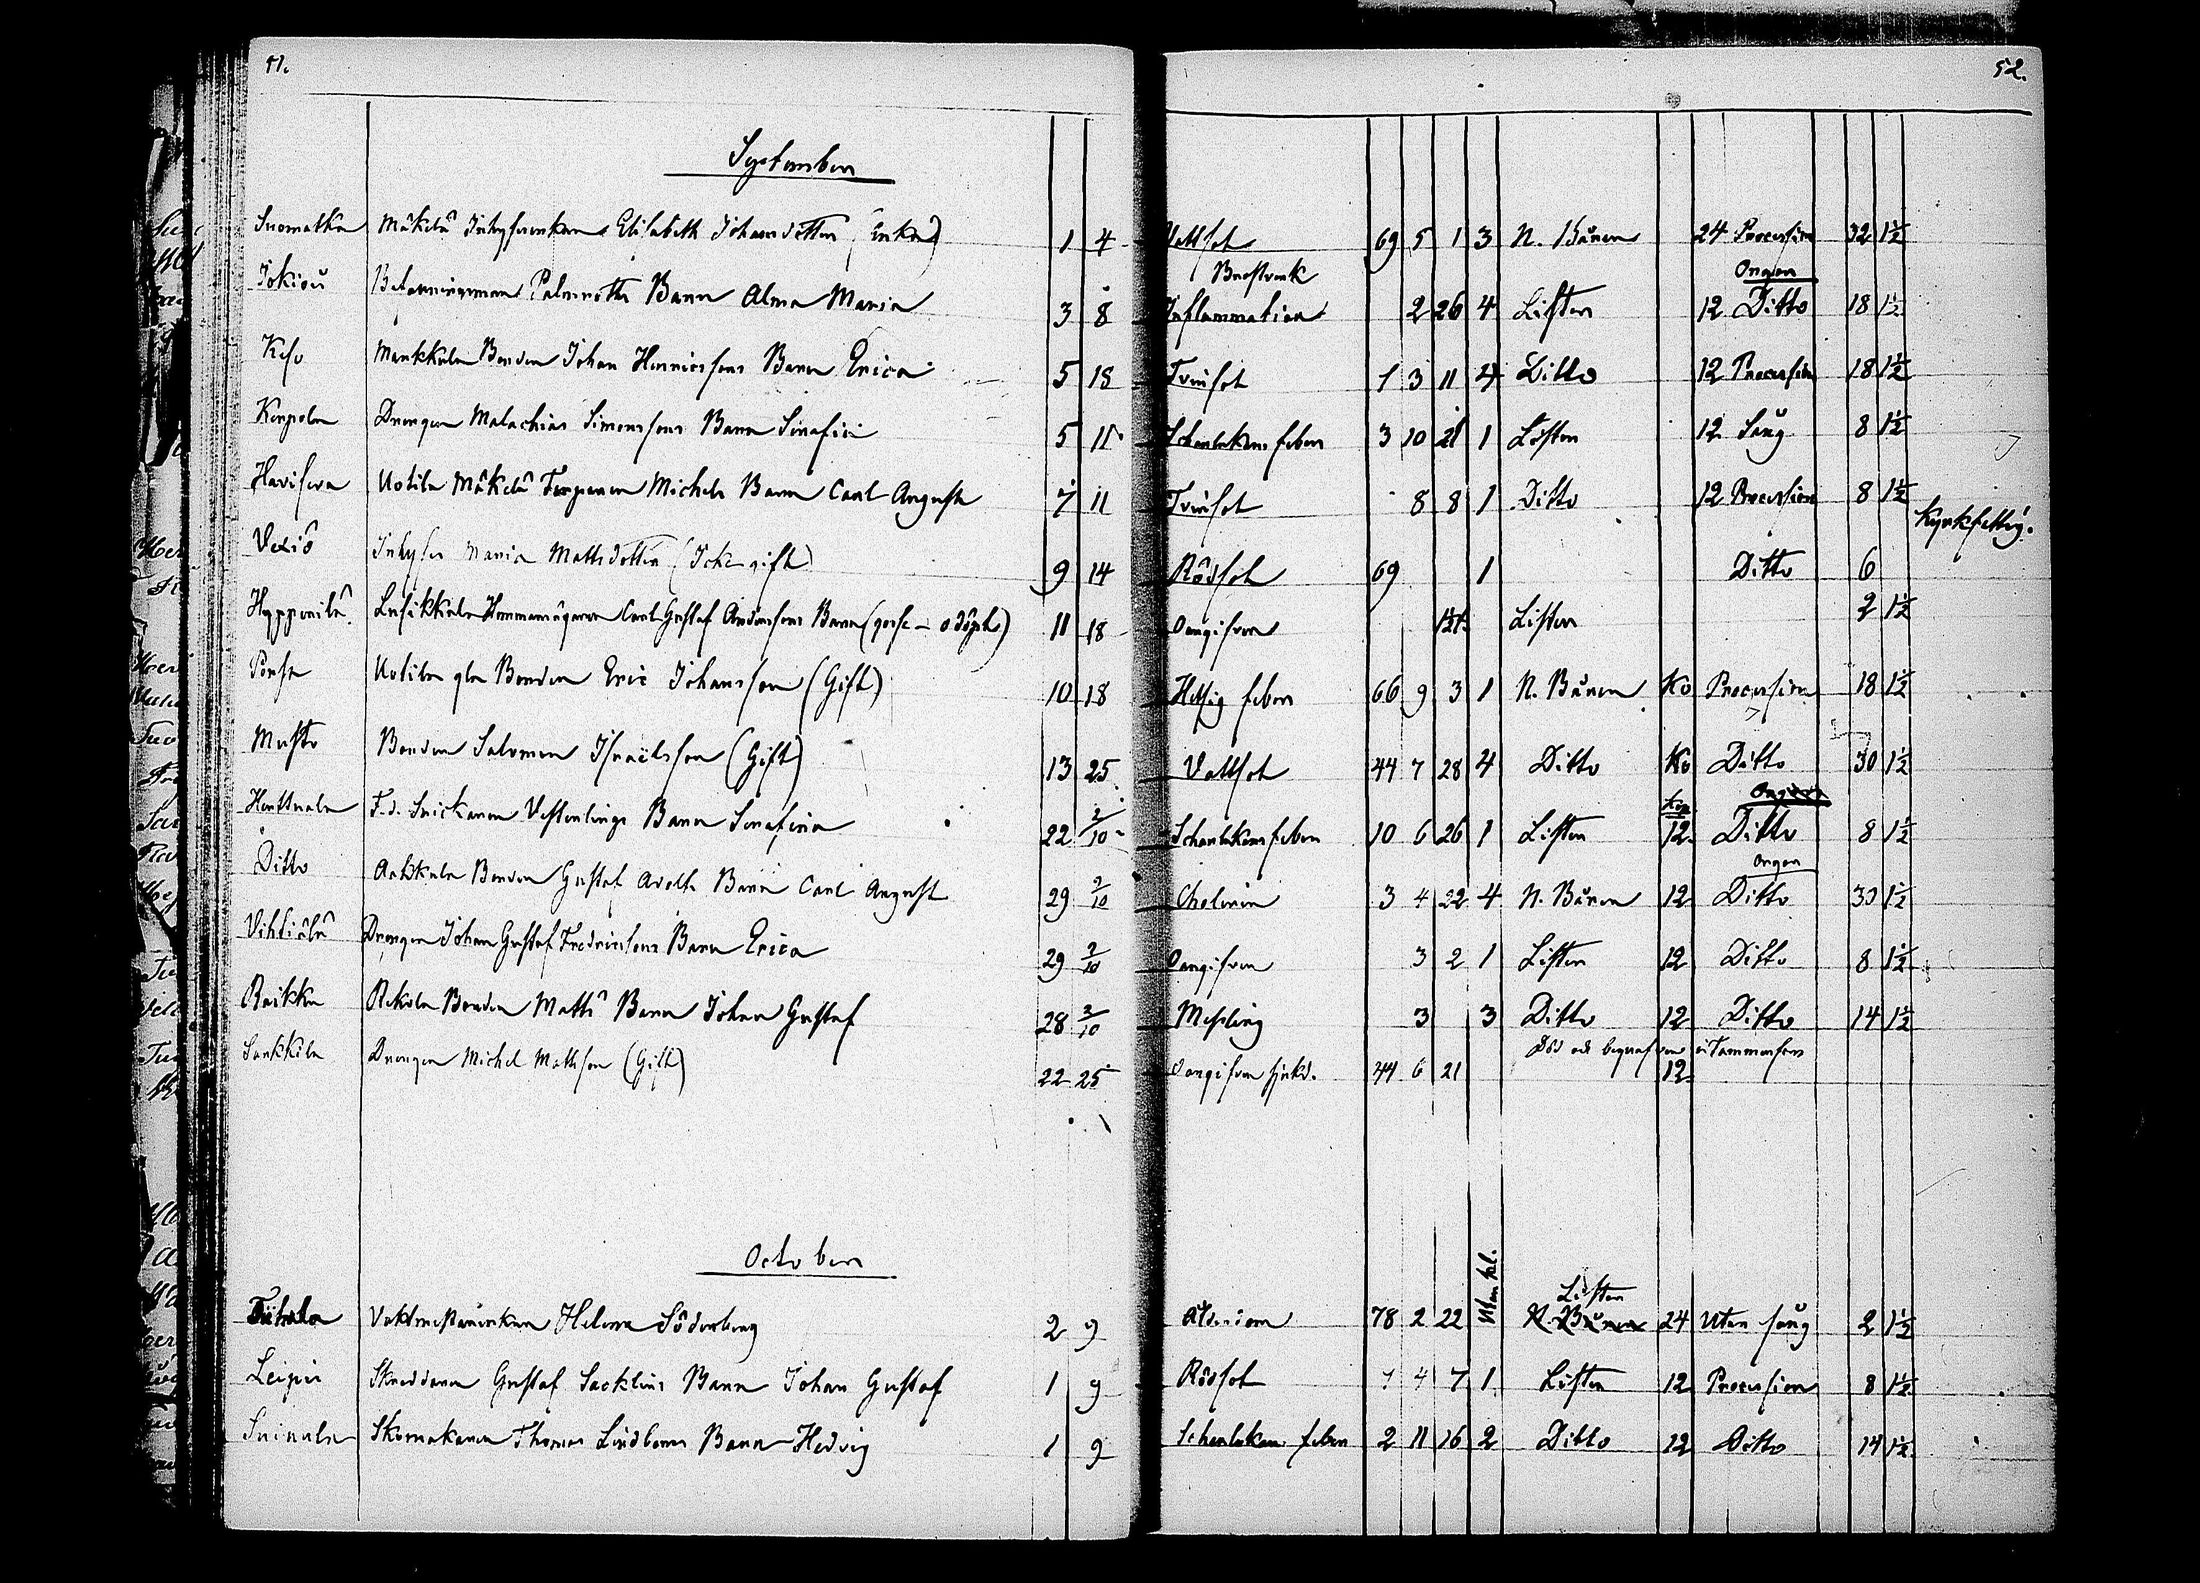 51.
52.
September
Suomatka Mäkelä Inhysenkan Elisabeth Johansdotter (Enka) 1 4 Vattsot 69 5 1 3 N. Båren 24 Procession 32 1½
Bröstverk Orgor
Jokiois Palmroths Barn Alma Maria 3 8 Inflammation 2 26 4 Listen 12 Ditto 18 1½
Keso Markkula Bonden Johan Henricssons Barn Erica 5 18 Tvinsot 1 3 11 4 Ditto 12 Procession 18 1½
Korpola Drengen Malachias Simonssons Barn Serafia 5 11 Scharlakans feber 3 10 21 1 Listen 12 Sång 8 1½
Haviseva Uotila Mäkelä Torparen Michels Barn Carl August 7 11 Tvinsot 8 8 1 Ditto 12 Procession 8 1½
Kyrkfattig.
Vexiö Inhyses Maria Mattsdotter (Icke gift) 9 14 Rödsot 69 1 Ditto 6
Hyppärilä Carl Gustaf Andersons Barn (gosse - odöpt) 11 18 Oangifven Listen 2 1½
Ponsa Uotila gla Bonden Eric Johansson (Gift) 10 18 Hetsig feber 66 9 3 1 N. Båren Ko Procession 18 1½
Musto Bonden Salomon Israëlsson (Gift) 13 25 Vattsot 44 7 28 4 Ditto Ko Ditto 30 1½
Kop. Orgor
Honttaala F.d. Snickaren Vesterlings Barn Serafina 22 2/10 Scharlakans feber 10 6 26 1 Listen 12 Ditto 8 1½
Orgor
Ditto Bonden Gustaf Adolfs Barn Carl August 29 2/10 Cholerin 3 4 22 4 N. Båren 12 Ditto 30 1½
Vihtiälä Drengen Johan Gustaf Fredricssons Barn Erica 29 2/10 Oangifven 3 2 1 Listen 12 Ditto 8 1½
Raikku Rekola Bonden Matts Barn Johan Gustaf 28 2/10 Messling 3 3 Ditto 12 Ditto 14 1½
Död och begrafven i Tammerfors
Sarkkila Drengen Michel Mattsson (Gift) 22 25 Oangifven sjukd. 44 6 21 12
October
Utan kl.
Listen
Tiihala Vaktmästarenkan Helena Söderberg 2 9 Ålderdom 78 2 22 N. Båren 24 Utan sång 2 1½
Leipii Skreddaren Gustaf Sacklins Barn Johan Gustaf 1 9 Rödsot 1 4 7 1 Listen 12 Procession 8 1½
Suinula Skomakaren Thomas Lindboms Barn Hedvig 1 9 Scharlakans feber 2 11 16 2 Ditto 12 Ditto 14 1½